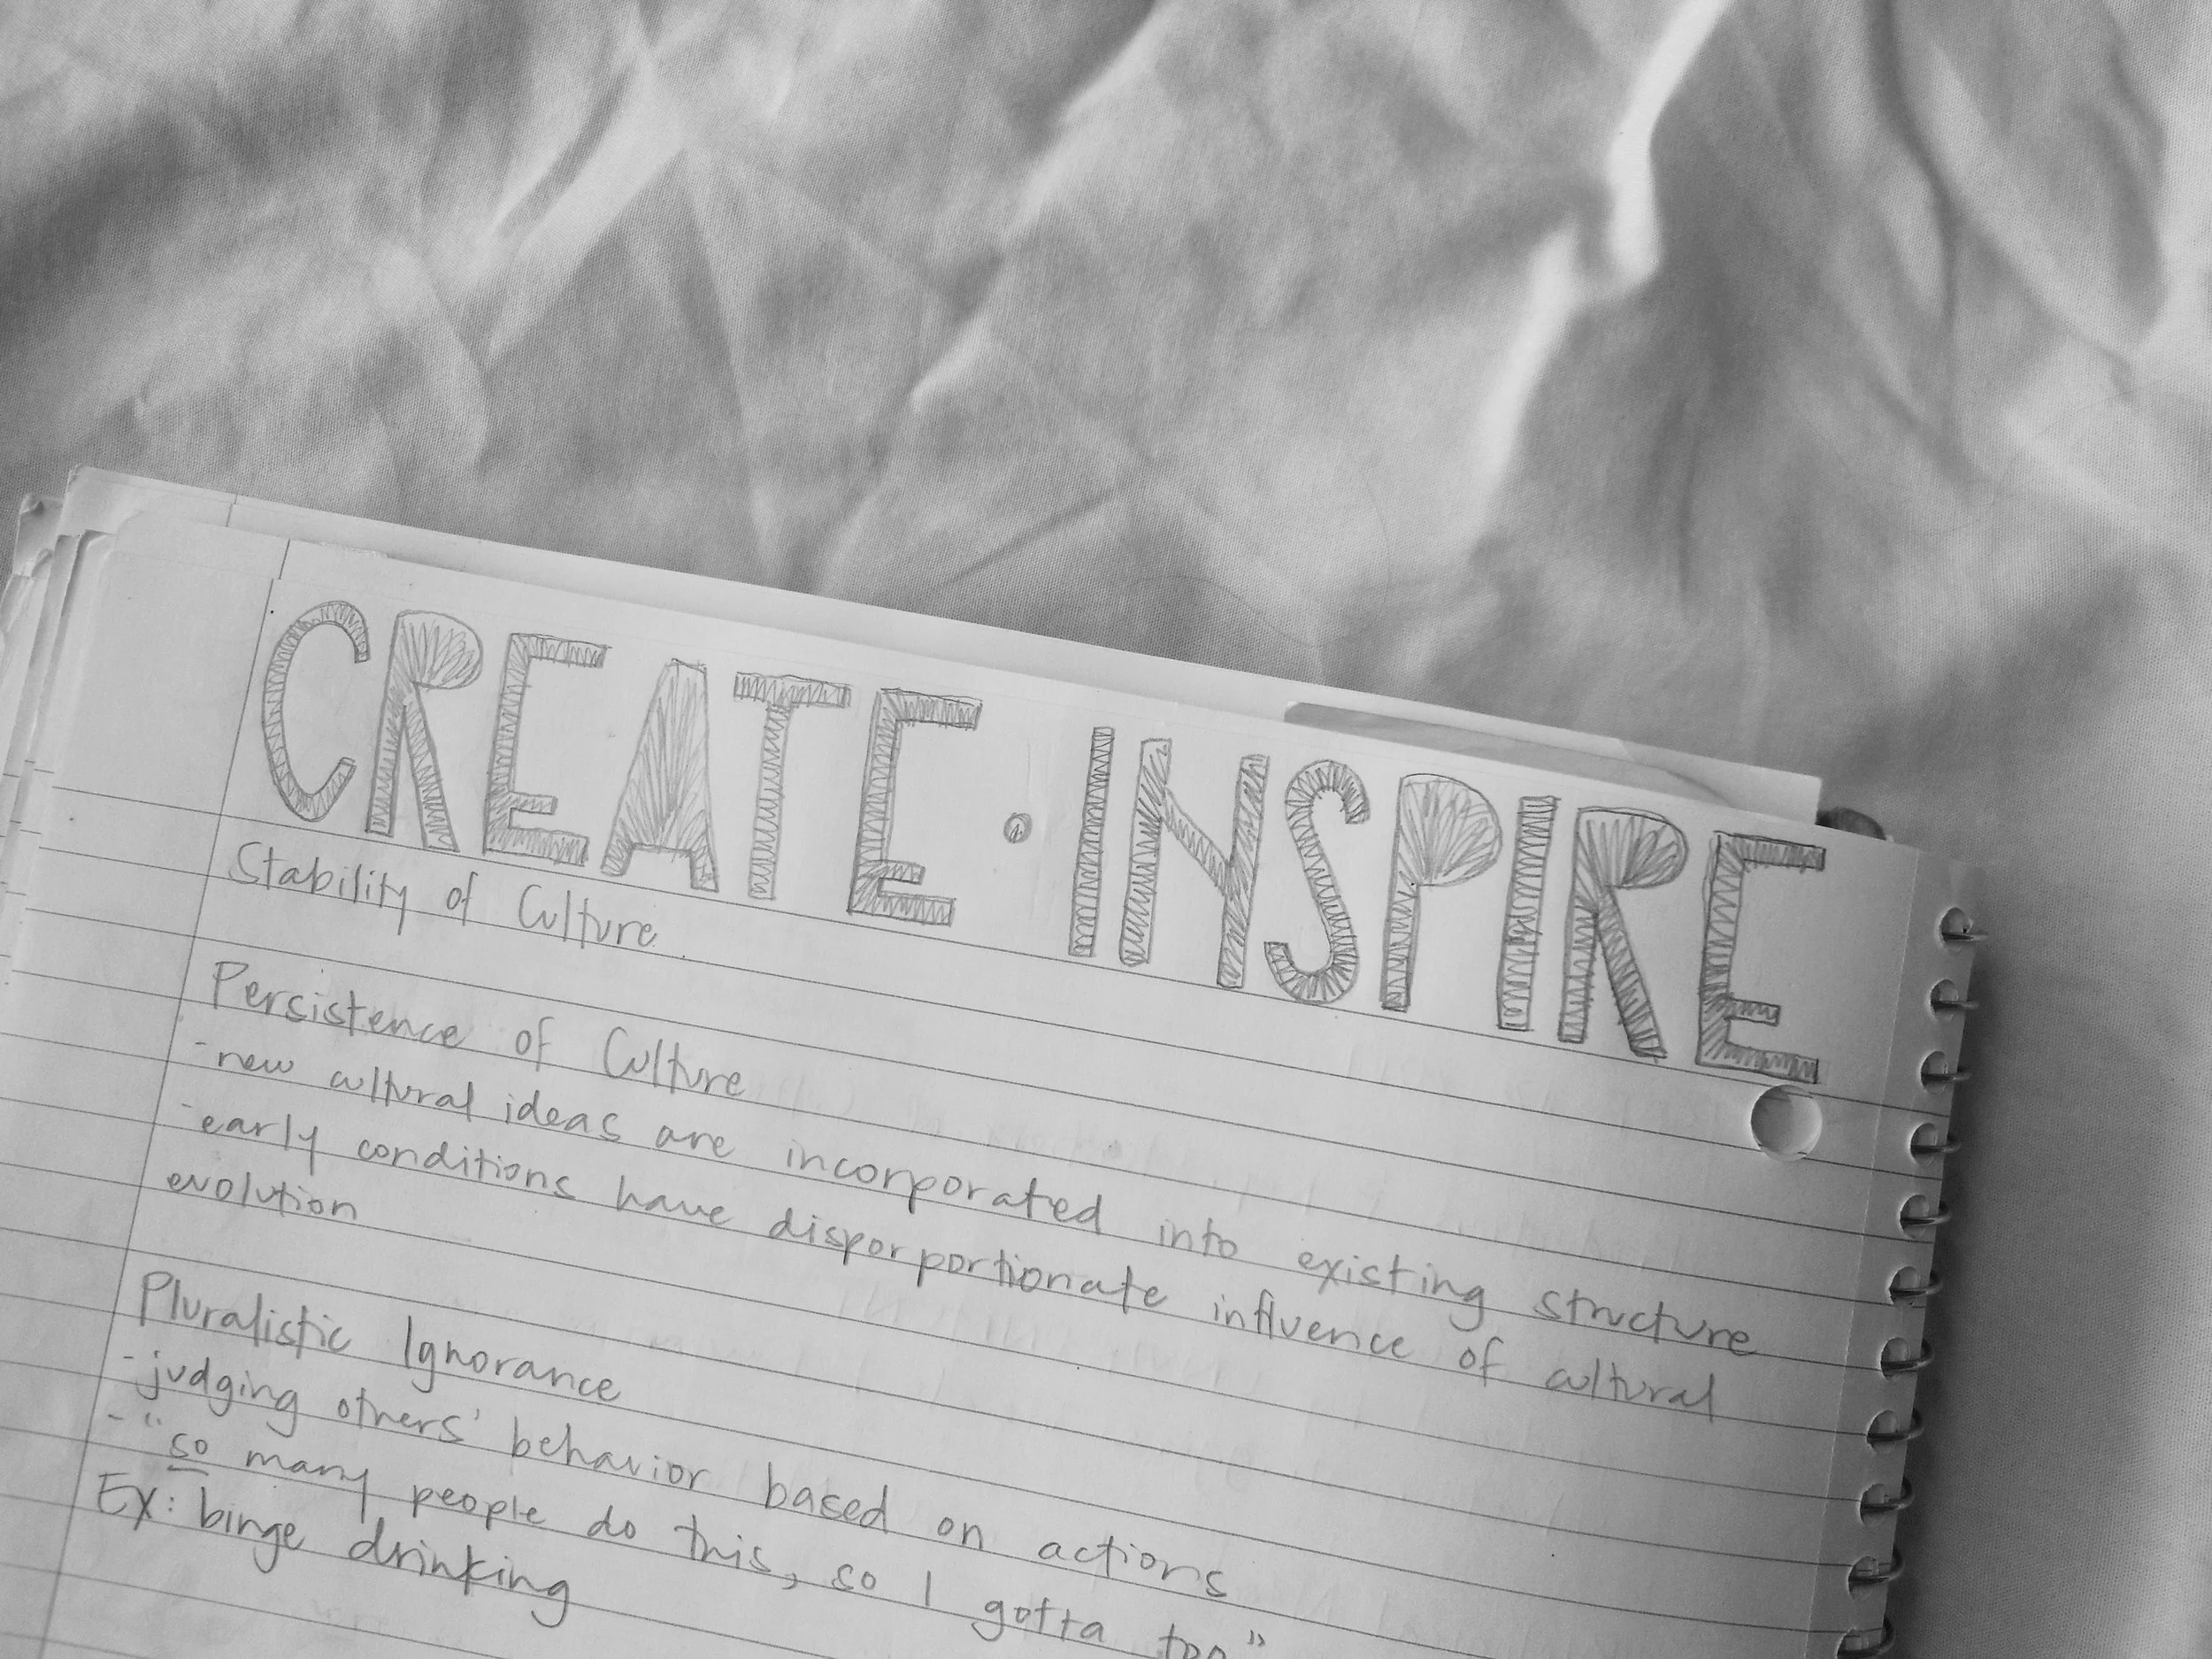 CREATE · INSPIRE
Stability of Culture
Persistence of Culture
- new cultural ideas are incorporated into existing structure
- early conditions have disporportionate influence of cultural
evolution
Pluralistic Ignorance
- judging others' behavior based on actions
- "so many people do this, so I gotta too"
Ex: binge drinking